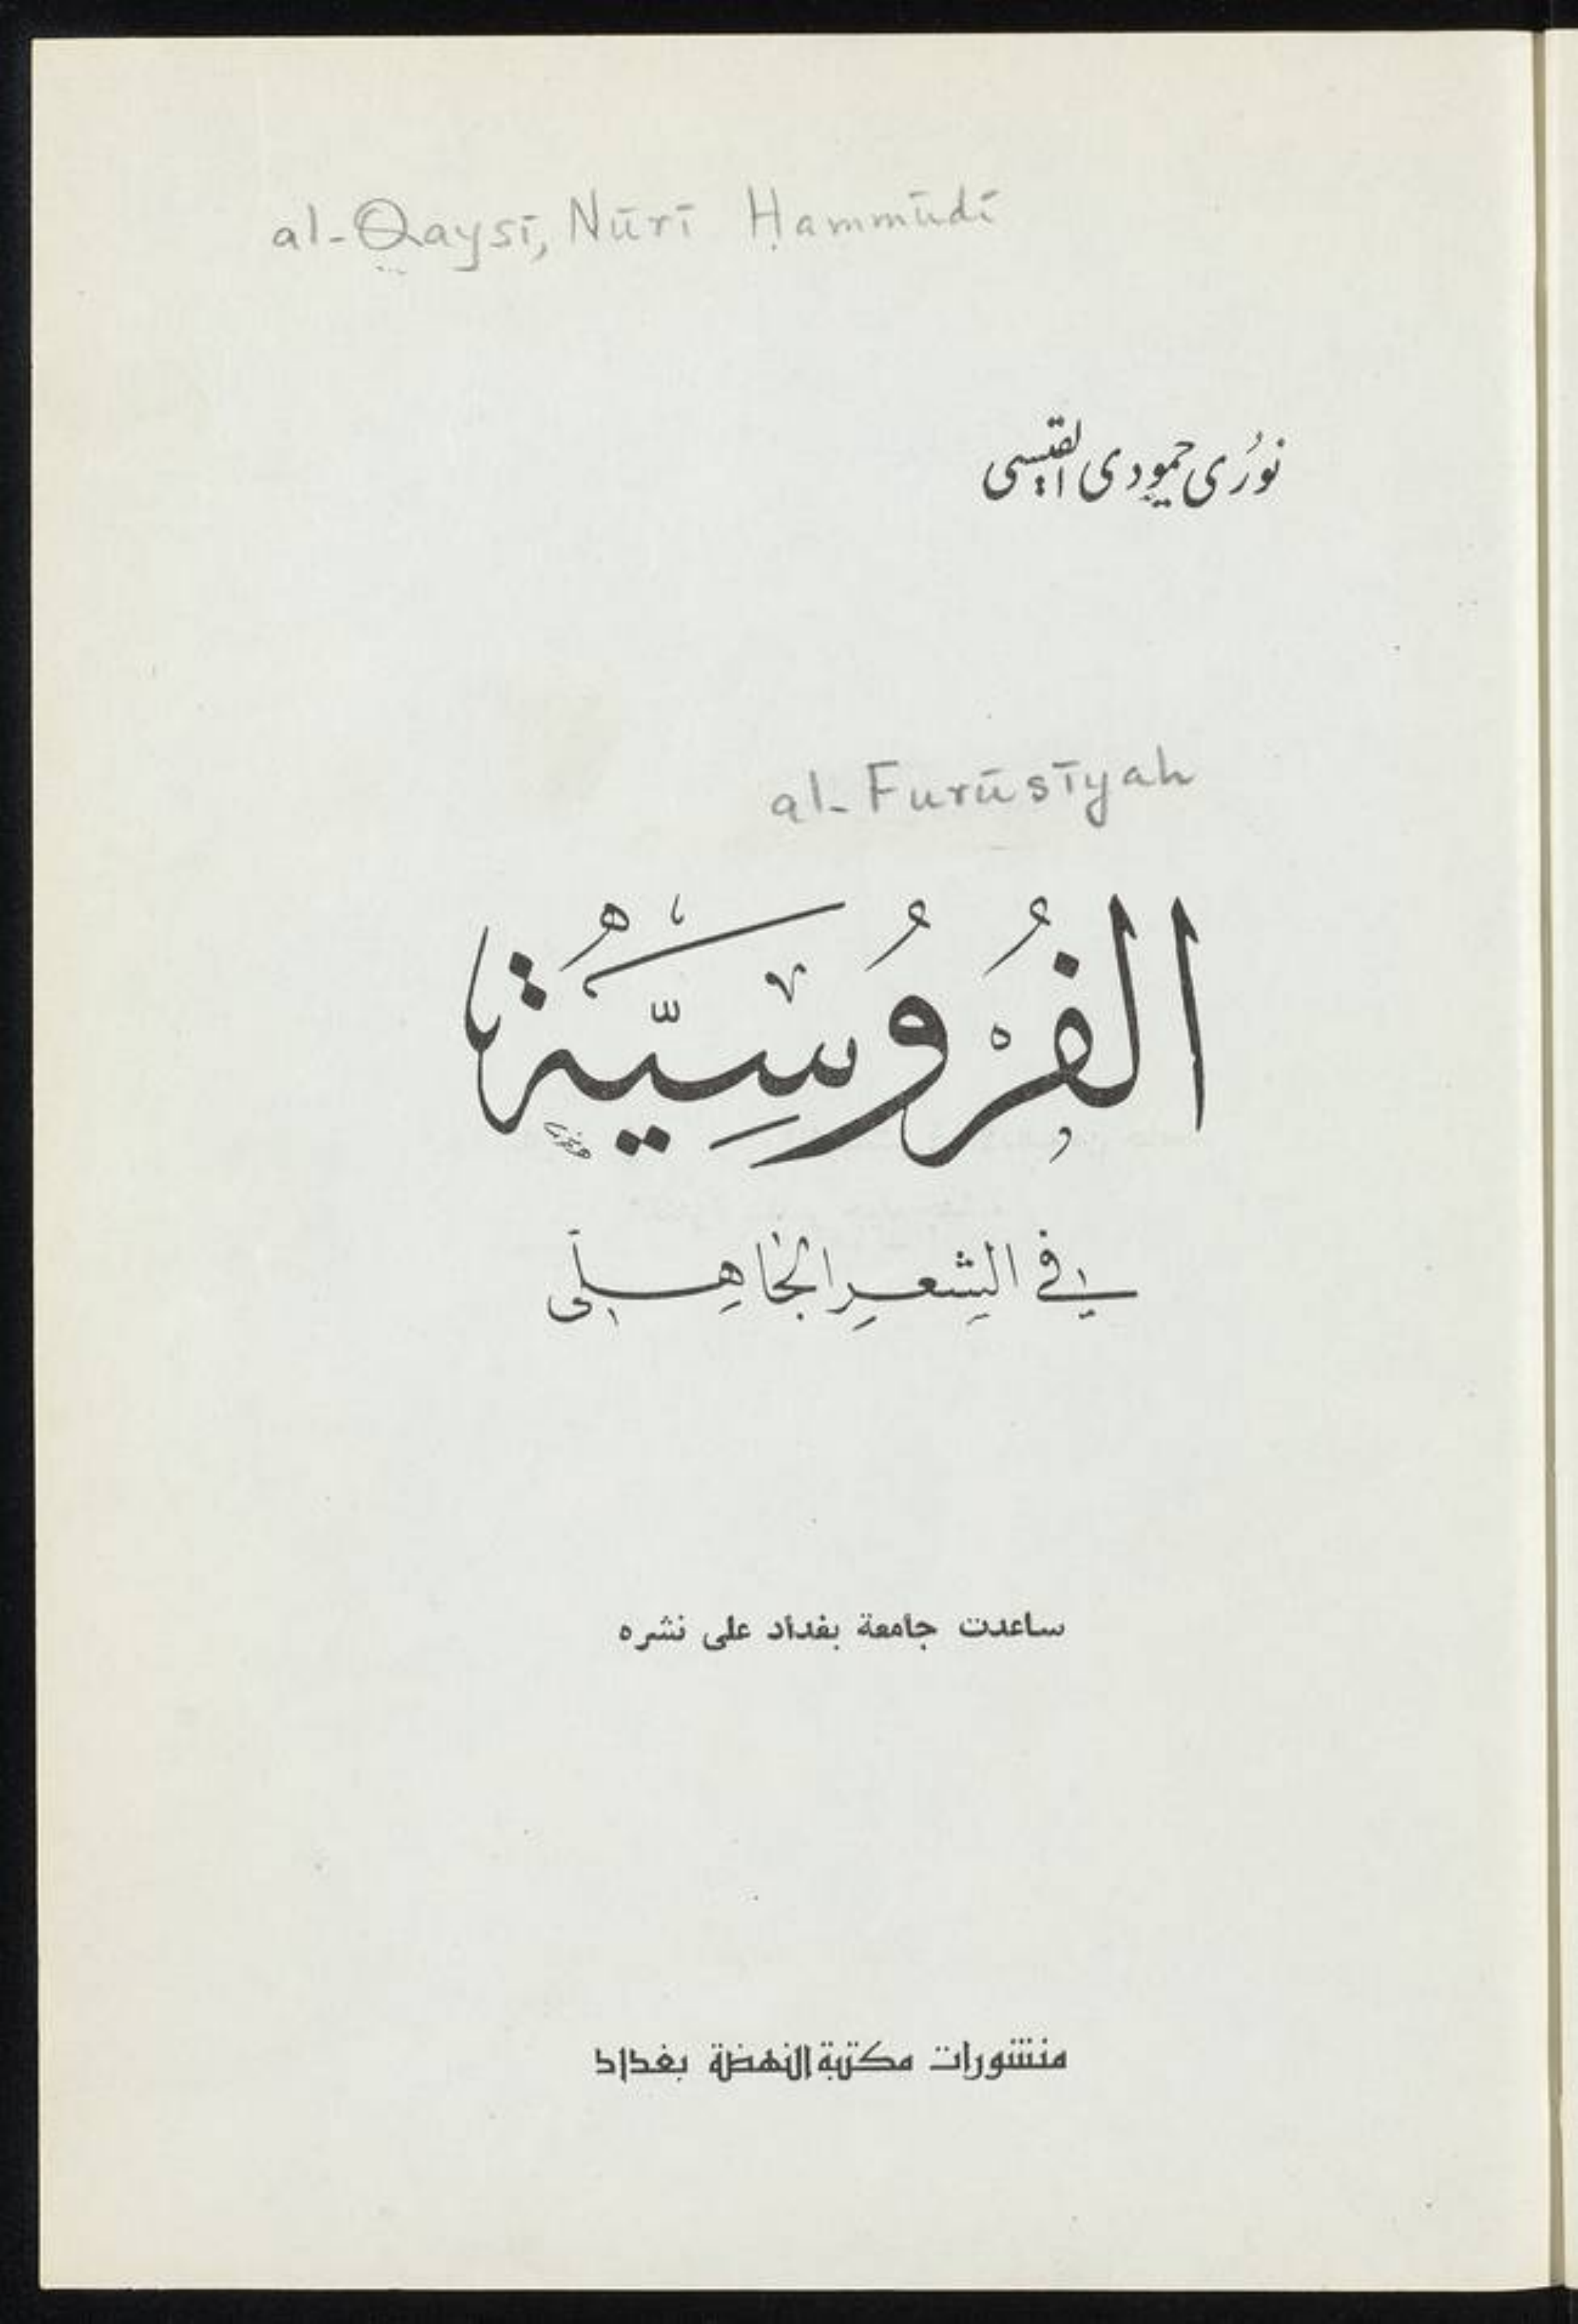 al-Qaysī, Nūrī Ḥammūdī
نورُى حمودى القيسى
al-Furūsīyah
الفُرُوسِيَّةُ
في الشِعرِ الجَاهِلىّ
ساعدت جامعة بغداد على نشره
منشورات مكتبة النهضة بغداد